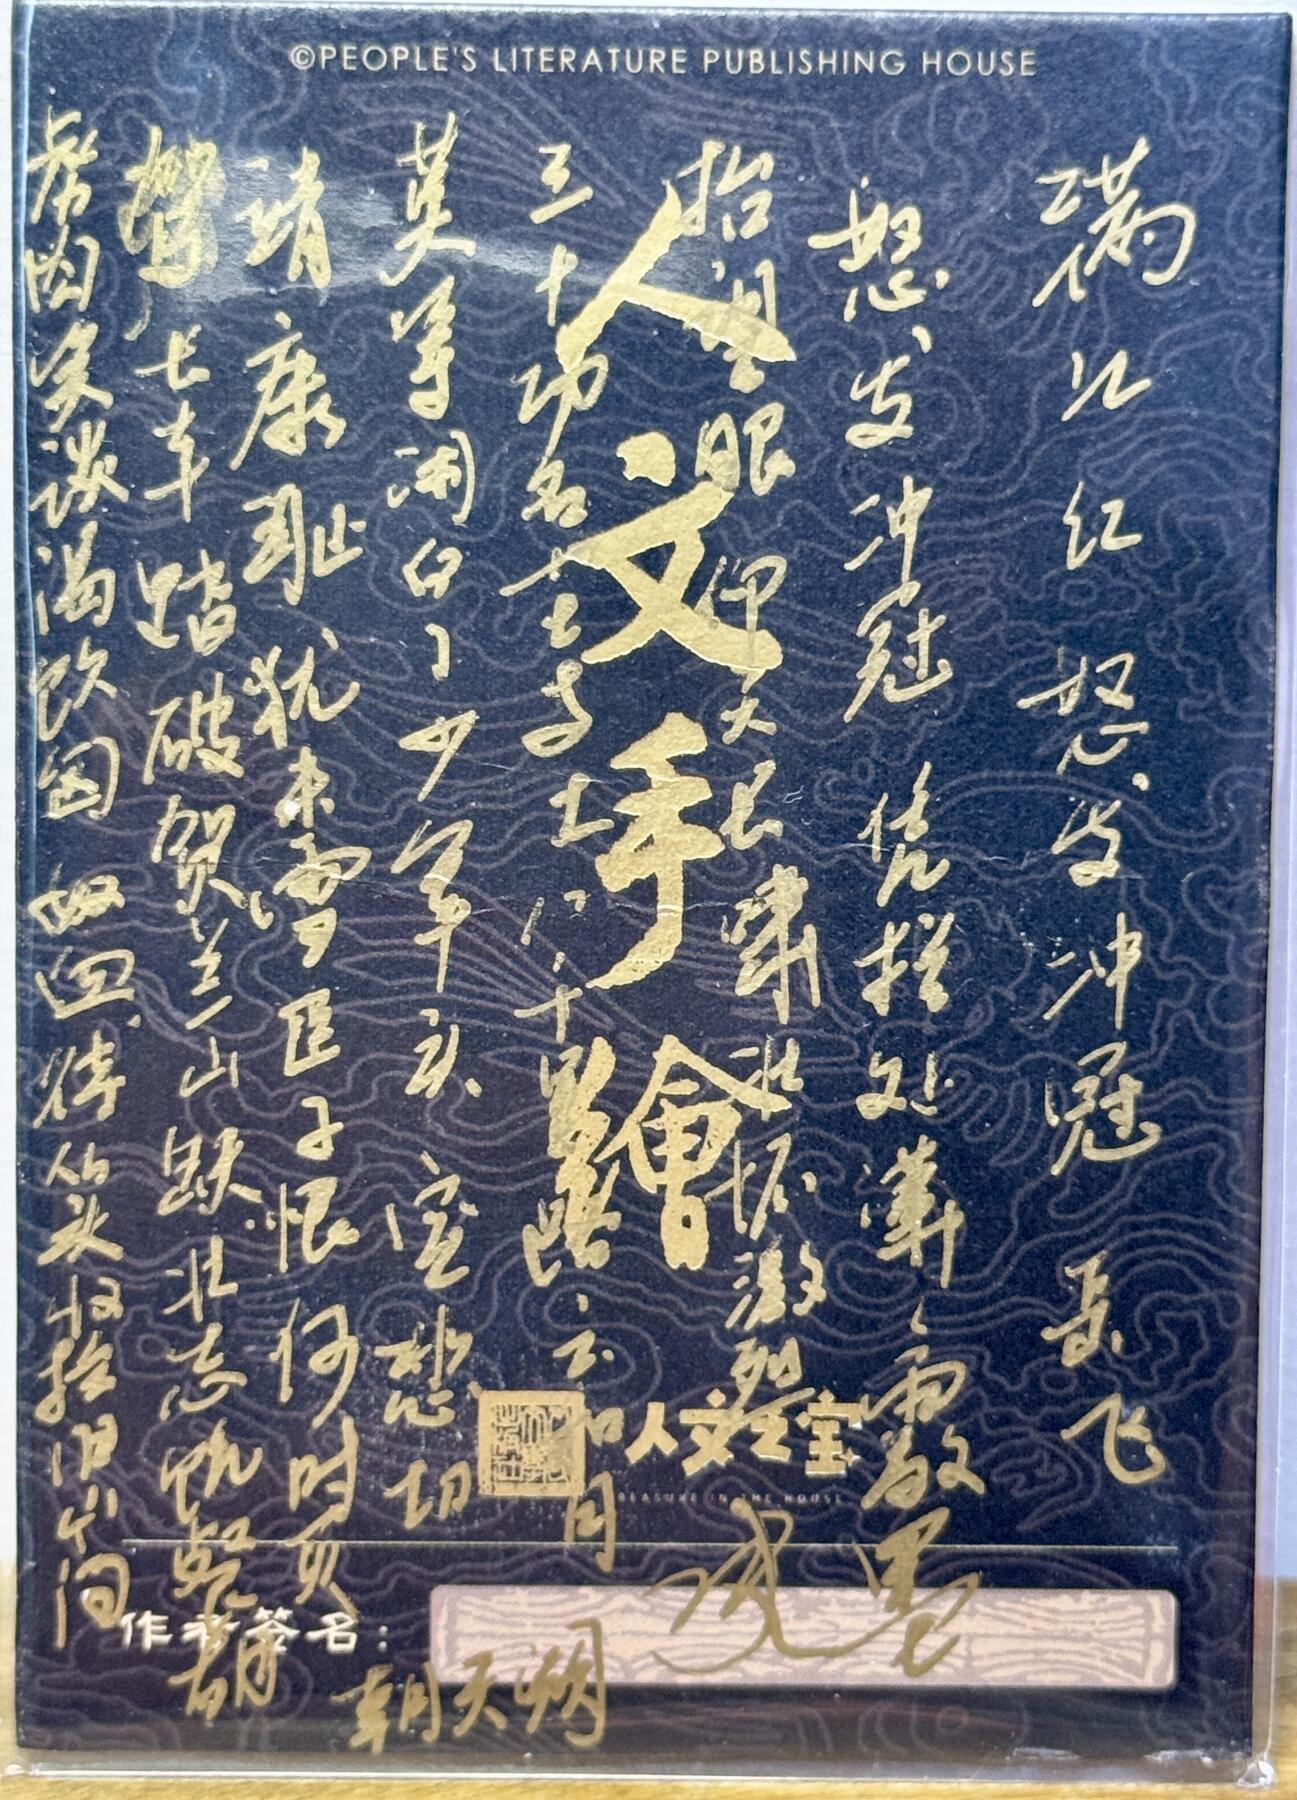 ©PEOPLE'S LITERATURE PUBLISHING HOUSE
人文手繪
满江红 怒发冲冠 岳飞
怒发冲冠 凭栏处 潇々雨歇
抬望眼 仰天长啸 壮怀激烈
三十功名尘与土 八千里路云和月
莫等闲 白了少年头 空悲切
靖康耻 犹未雪 臣子恨 何时灭
驾长车 踏破贺兰山缺 壮志饥餐胡
虏肉 笑谈渴饮匈奴血 待从头收拾旧山河
朝天阙
人文之宝
TREASURE IN THE HOUSE
作者签名：